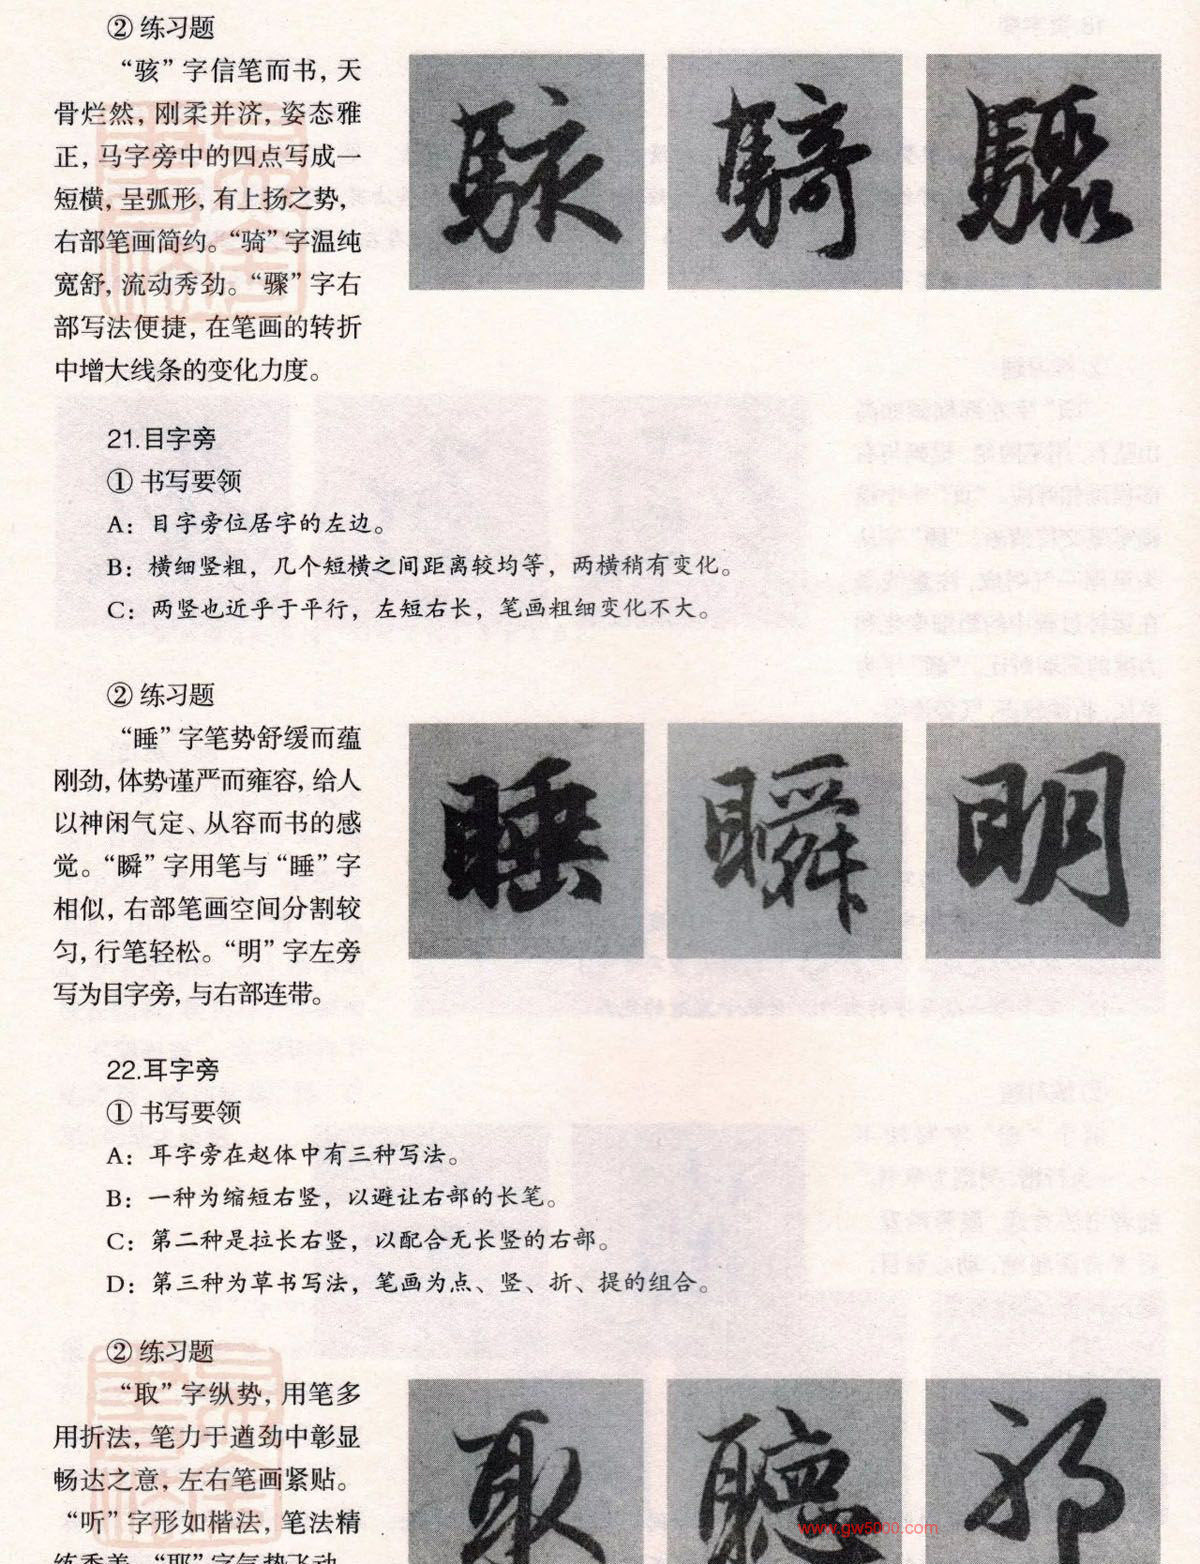 ② 练习题
“骇”字信笔而书，天
骨烂然，刚柔并济，姿态雅
正，马字旁中的四点写成一
短横，呈弧形，有上扬之势，
右部笔画简约。“骑”字温纯
宽舒，流动秀劲。“骤”字右
部写法便捷，在笔画的转折
中增大线条的变化力度。
駭 騎 驟
21.目字旁
① 书写要领
A：目字旁位居字的左边。
B：横细竖粗，几个短横之间距离较均等，两横稍有变化。
C：两竖也近乎于平行，左短右长，笔画粗细变化不大。
② 练习题
“睡”字笔势舒缓而蕴
刚劲，体势谨严而雍容，给人
以神闲气定、从容而书的感
觉。“瞬”字用笔与“睡”字
相似，右部笔画空间分割较
匀，行笔轻松。“明”字左旁
写为目字旁，与右部连带。
睡 瞬 明
22.耳字旁
① 书写要领
A：耳字旁在赵体中有三种写法。
B：一种为缩短右竖，以避让右部的长笔。
C：第二种是拉长右竖，以配合无长竖的右部。
D：第三种为草书写法，笔画为点、竖、折、提的组合。
② 练习题
“取”字纵势，用笔多
用折法，笔力于遒劲中彰显
畅达之意，左右笔画紧贴。
“听”字形如楷法，笔法精
练秀美。“耶”字气势飞动，
取 聽 耶
www.gw5000.com